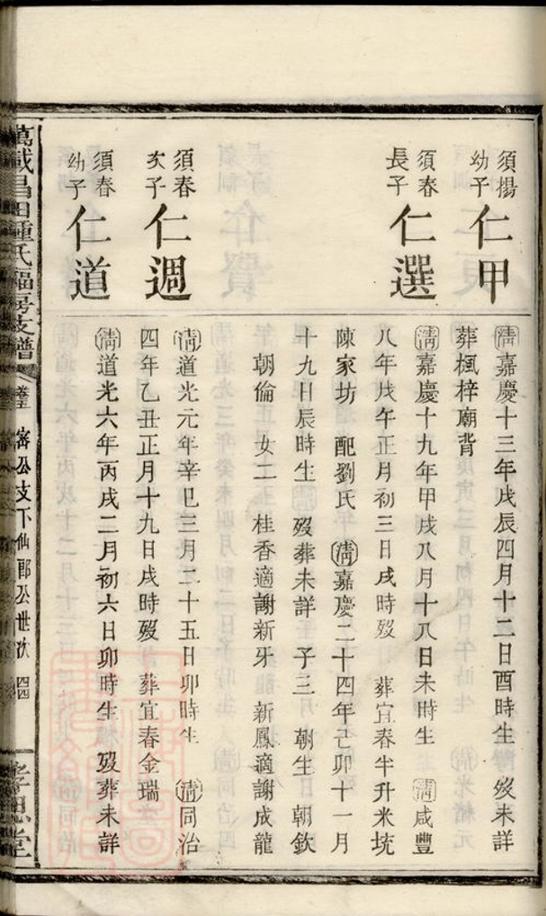 須楊
幼子
仁甲
清嘉慶十三年戊辰四月十二日酉時生 歿未詳
葬楓梓廟背
須春
長子
仁選
清嘉慶十九年甲戌八月十八日未時生 清咸豐
八年戊午正月初三日戌時歿 葬宜春半升米坑
陳家坊 配劉氏 清嘉慶二十四年己卯十一月
十九日辰時生 歿葬未詳 子三 朝生 朝欽
朝倫 女二 桂香適謝新牙 新鳳適謝成龍
須春
次子
仁週
清道光元年辛巳三月二十五日卯時生 清同治
四年乙丑正月十九日戌時歿 葬宜春金瑞
須春
幼子
仁道
清道光六年丙戌二月初六日卯時生 歿葬未詳
萬載昌田鍾氏福房支譜
公支下仙郎公世次
孝思堂